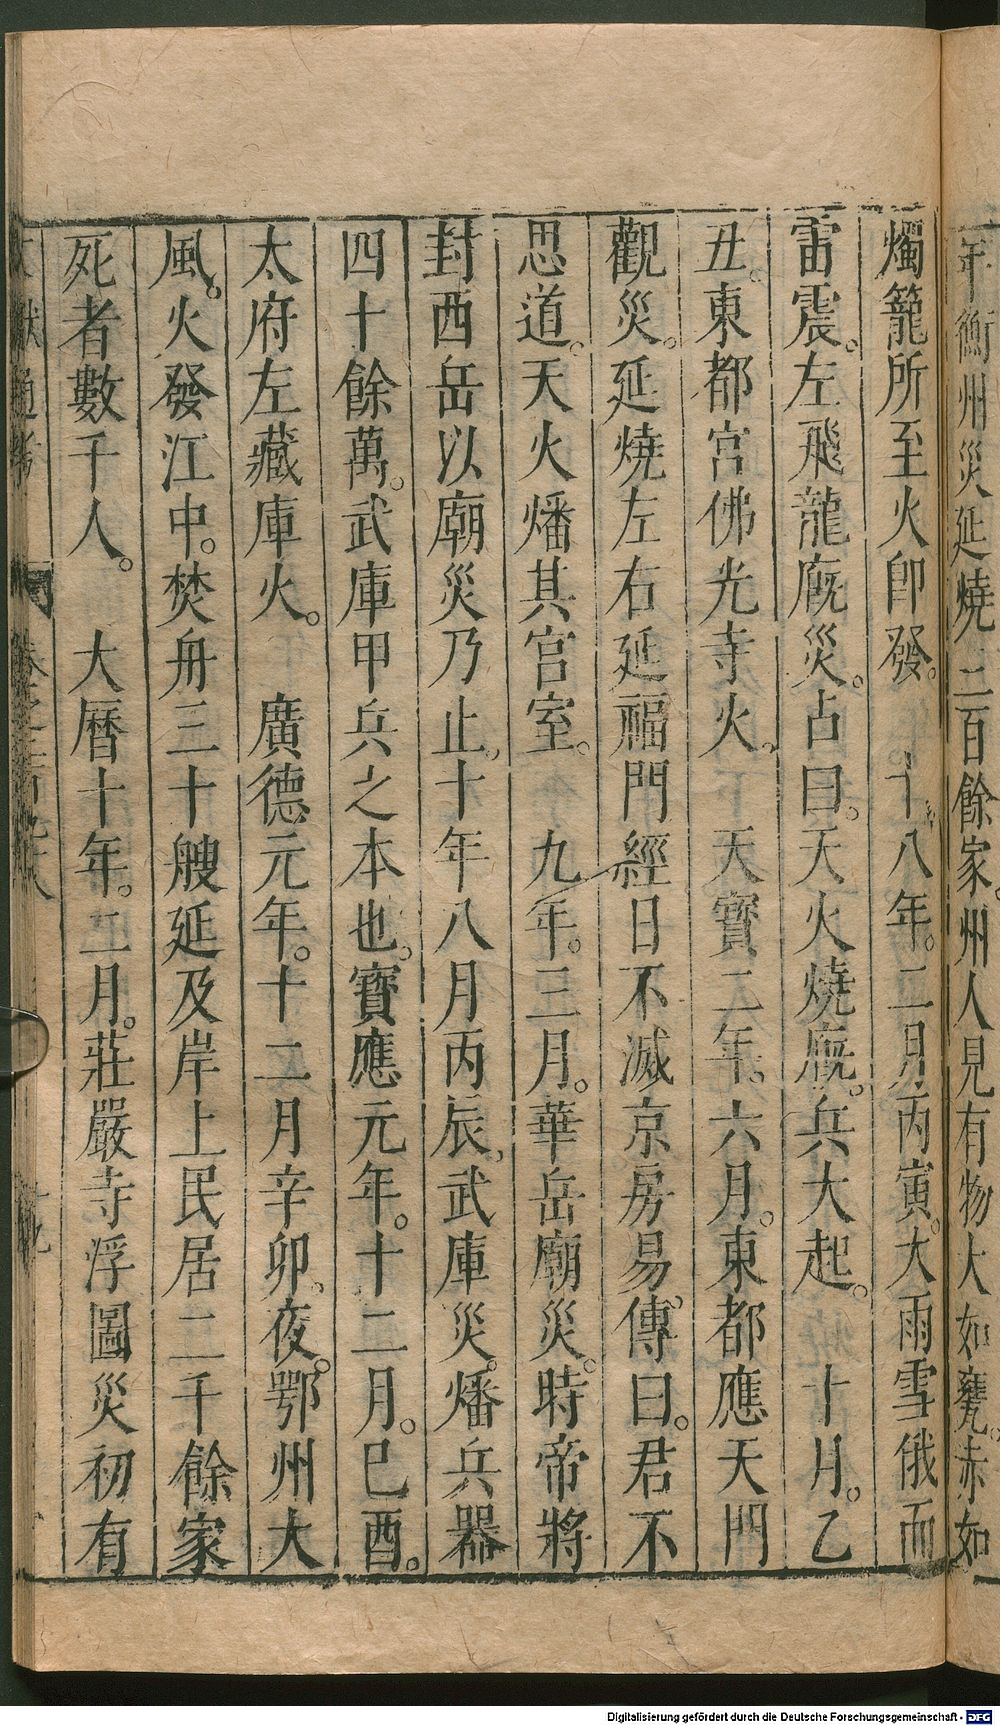 年衡州災延燒三百餘家。州人見有物大如甕。赤如
燭籠所至火卽發。十八年。二月丙寅。大雨雪俄而
雷震。左飛龍廐災。占曰。天火燒廐。兵大起。十月。乙
丑。東都宮佛光寺火。天寶二年。六月。東都應天門
觀災。延燒左右延福門經日不滅京房易傳曰。君不
思道。天火燔其宮室。九年。三月。華岳廟災。時帝將
封西岳以廟災乃止。十年八月丙辰。武庫災。燔兵器
四十餘萬。武庫甲兵之本也。寶應元年。十二月。己酉。
太府左藏庫火。廣德元年。十二月辛卯。夜。鄂州大
風。火發江中。焚舟三十艘延及岸上民居二千餘家
死者數千人。大曆十年。二月。莊嚴寺浮圖災初有
文獻通考 卷之二百九十八
Digitalisierung gefördert durch die Deutsche Forschungsgemeinschaft - DFG